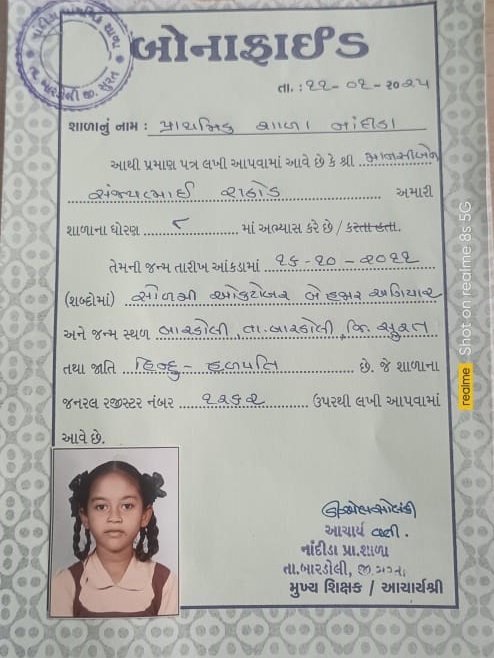 બોનાફાઈડ
તા. : ૨૨- ૦૧- ૨૦૨૫
શાળાનું નામ : પ્રાથમિક શાળા નાંદીડા
આથી પ્રમાણ પત્ર લખી આપવામાં આવે છે કે શ્રી માનસીબેન
સંજયભાઈ રાઠોડ અમારી
શાળાના ધોરણ ૮ માં અભ્યાસ કરે છે / કરતા હતા.
તેમની જન્મ તારીખ આંકડામાં ૧૬ - ૧૦ - ૨૦૧૧
(શબ્દોમાં) સોળમી ઓકટોબર બે હજાર અગિયાર
અને જન્મ સ્થળ બારડોલી, તા.બારડોલી, જિ. સુરત
તથા જાતિ હિન્દુ - હળપતિ છે. જે શાળાના
જનરલ રજીસ્ટર નંબર ઉપરથી લખી આપવામાં
આવે છે.
આચાર્ય
નાંદીડા પ્રા.શાળા
તા.બારડોલી, જી.સુરત
મુખ્ય શિક્ષક / આચાર્યશ્રી
realme Shot on realme 8s 5G